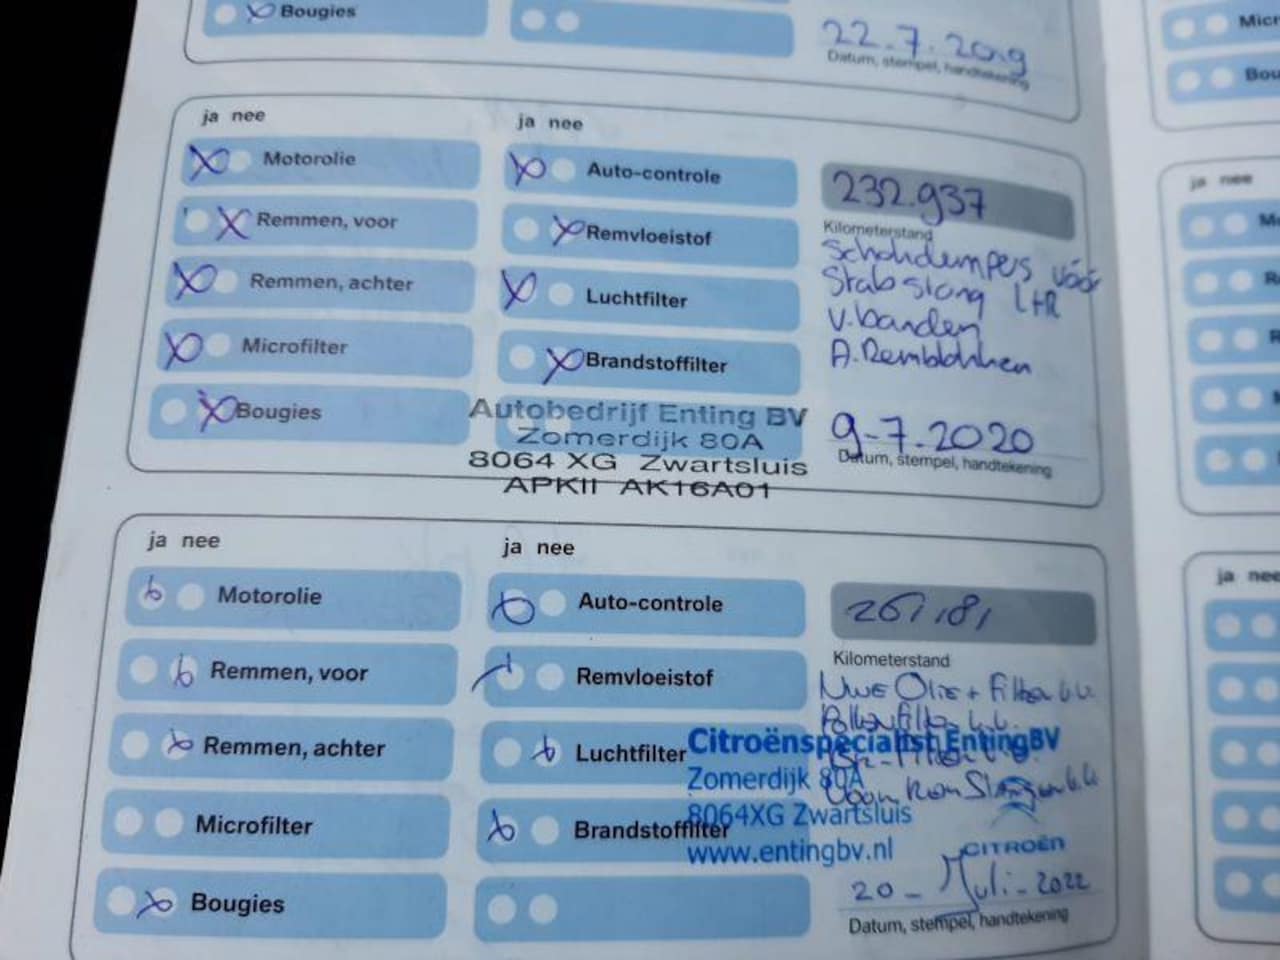 Bougies
22.7.2019
Datum, stempel, handtekening
ja nee
ja nee
Motorolie
Auto-controle
232.937
Remmen, voor
Remvloeistof
Kilometerstand
Schokdempers vóór
Remmen, achter
Luchtfilter
Stabstang L+R
V.banden
Microfilter
Brandstoffilter
A.Remblokken
Bougies
9-7.2020
Datum, stempel, handtekening
Autobedrijf Enting BV
Zomerdijk 80A
8064 XG Zwartsluis
APKII AK16A01
ja nee
ja nee
Motorolie
Auto-controle
261181
Remmen, voor
Remvloeistof
Kilometerstand
Nwe Olie + Filter
Pollenfilter
Remmen, achter
Luchtfilter
Citroënspecialist EntingBV
Zomerdijk 80A
8064XG Zwartsluis
www.entingbv.nl
CITROËN
Voor Rem Slangen
Microfilter
Brandstoffilter
Bougies
20 - Juli - 2022
Datum, stempel, handtekening
ja nee
ja nee